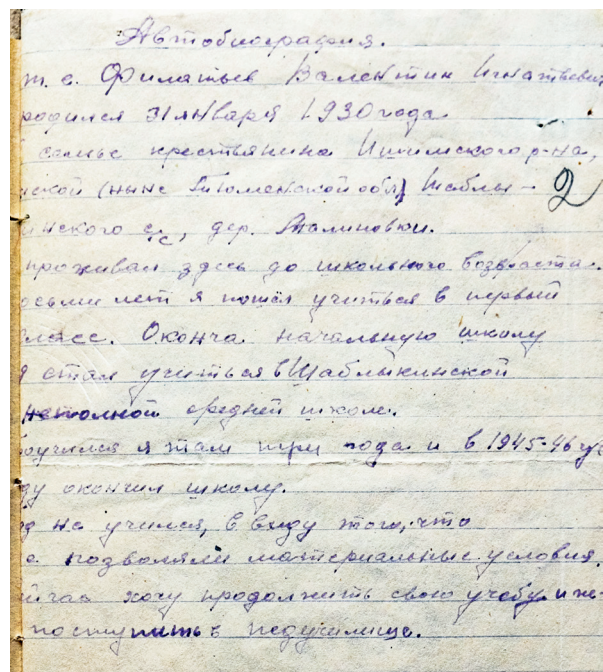 Автобиография.
т. е. Филатьев Валентин Игнатьевич
родился 31 января 1930 года
семье крестьянина Ишимского р-на,
ской (ныне Тюменской обл) Шаблы-
2
инского с/с, дер. Малиновки.
проживал здесь до школьного возраста.
осьми лет я пошёл учиться в первый
класс. Оконча начальную школу
я стал учиться в Шаблыкинской
неполной средней школе.
роучился я там три года и в 1945-46 уч
ду окончил школу.
од не учился, в виду того, что
е позволяли материальные условия.
ейчас хочу продолжить свою учебу и же-
поступить в педучилище.